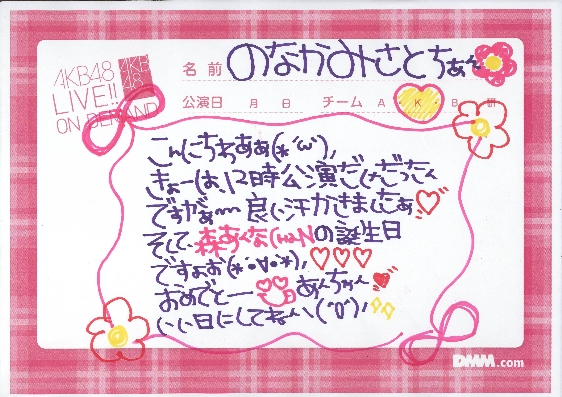 AKB48
LIVE!!
ON DEMAND
AKB
48
名前 のなかみさとちゃん
公演日 月 日 チーム A・K・B・研
こんにちわぁぁ(*'ω'),
きょーは、12時公演だけだったん
ですがぁ〜 良い汗かきましたぁ♡
そして、森あんなchaNの誕生日
ですよぉ(*・∀・*),♡♡♡
おめでとー あんちゃん♥
いい日にしてねん、(^0^),
DMM.com